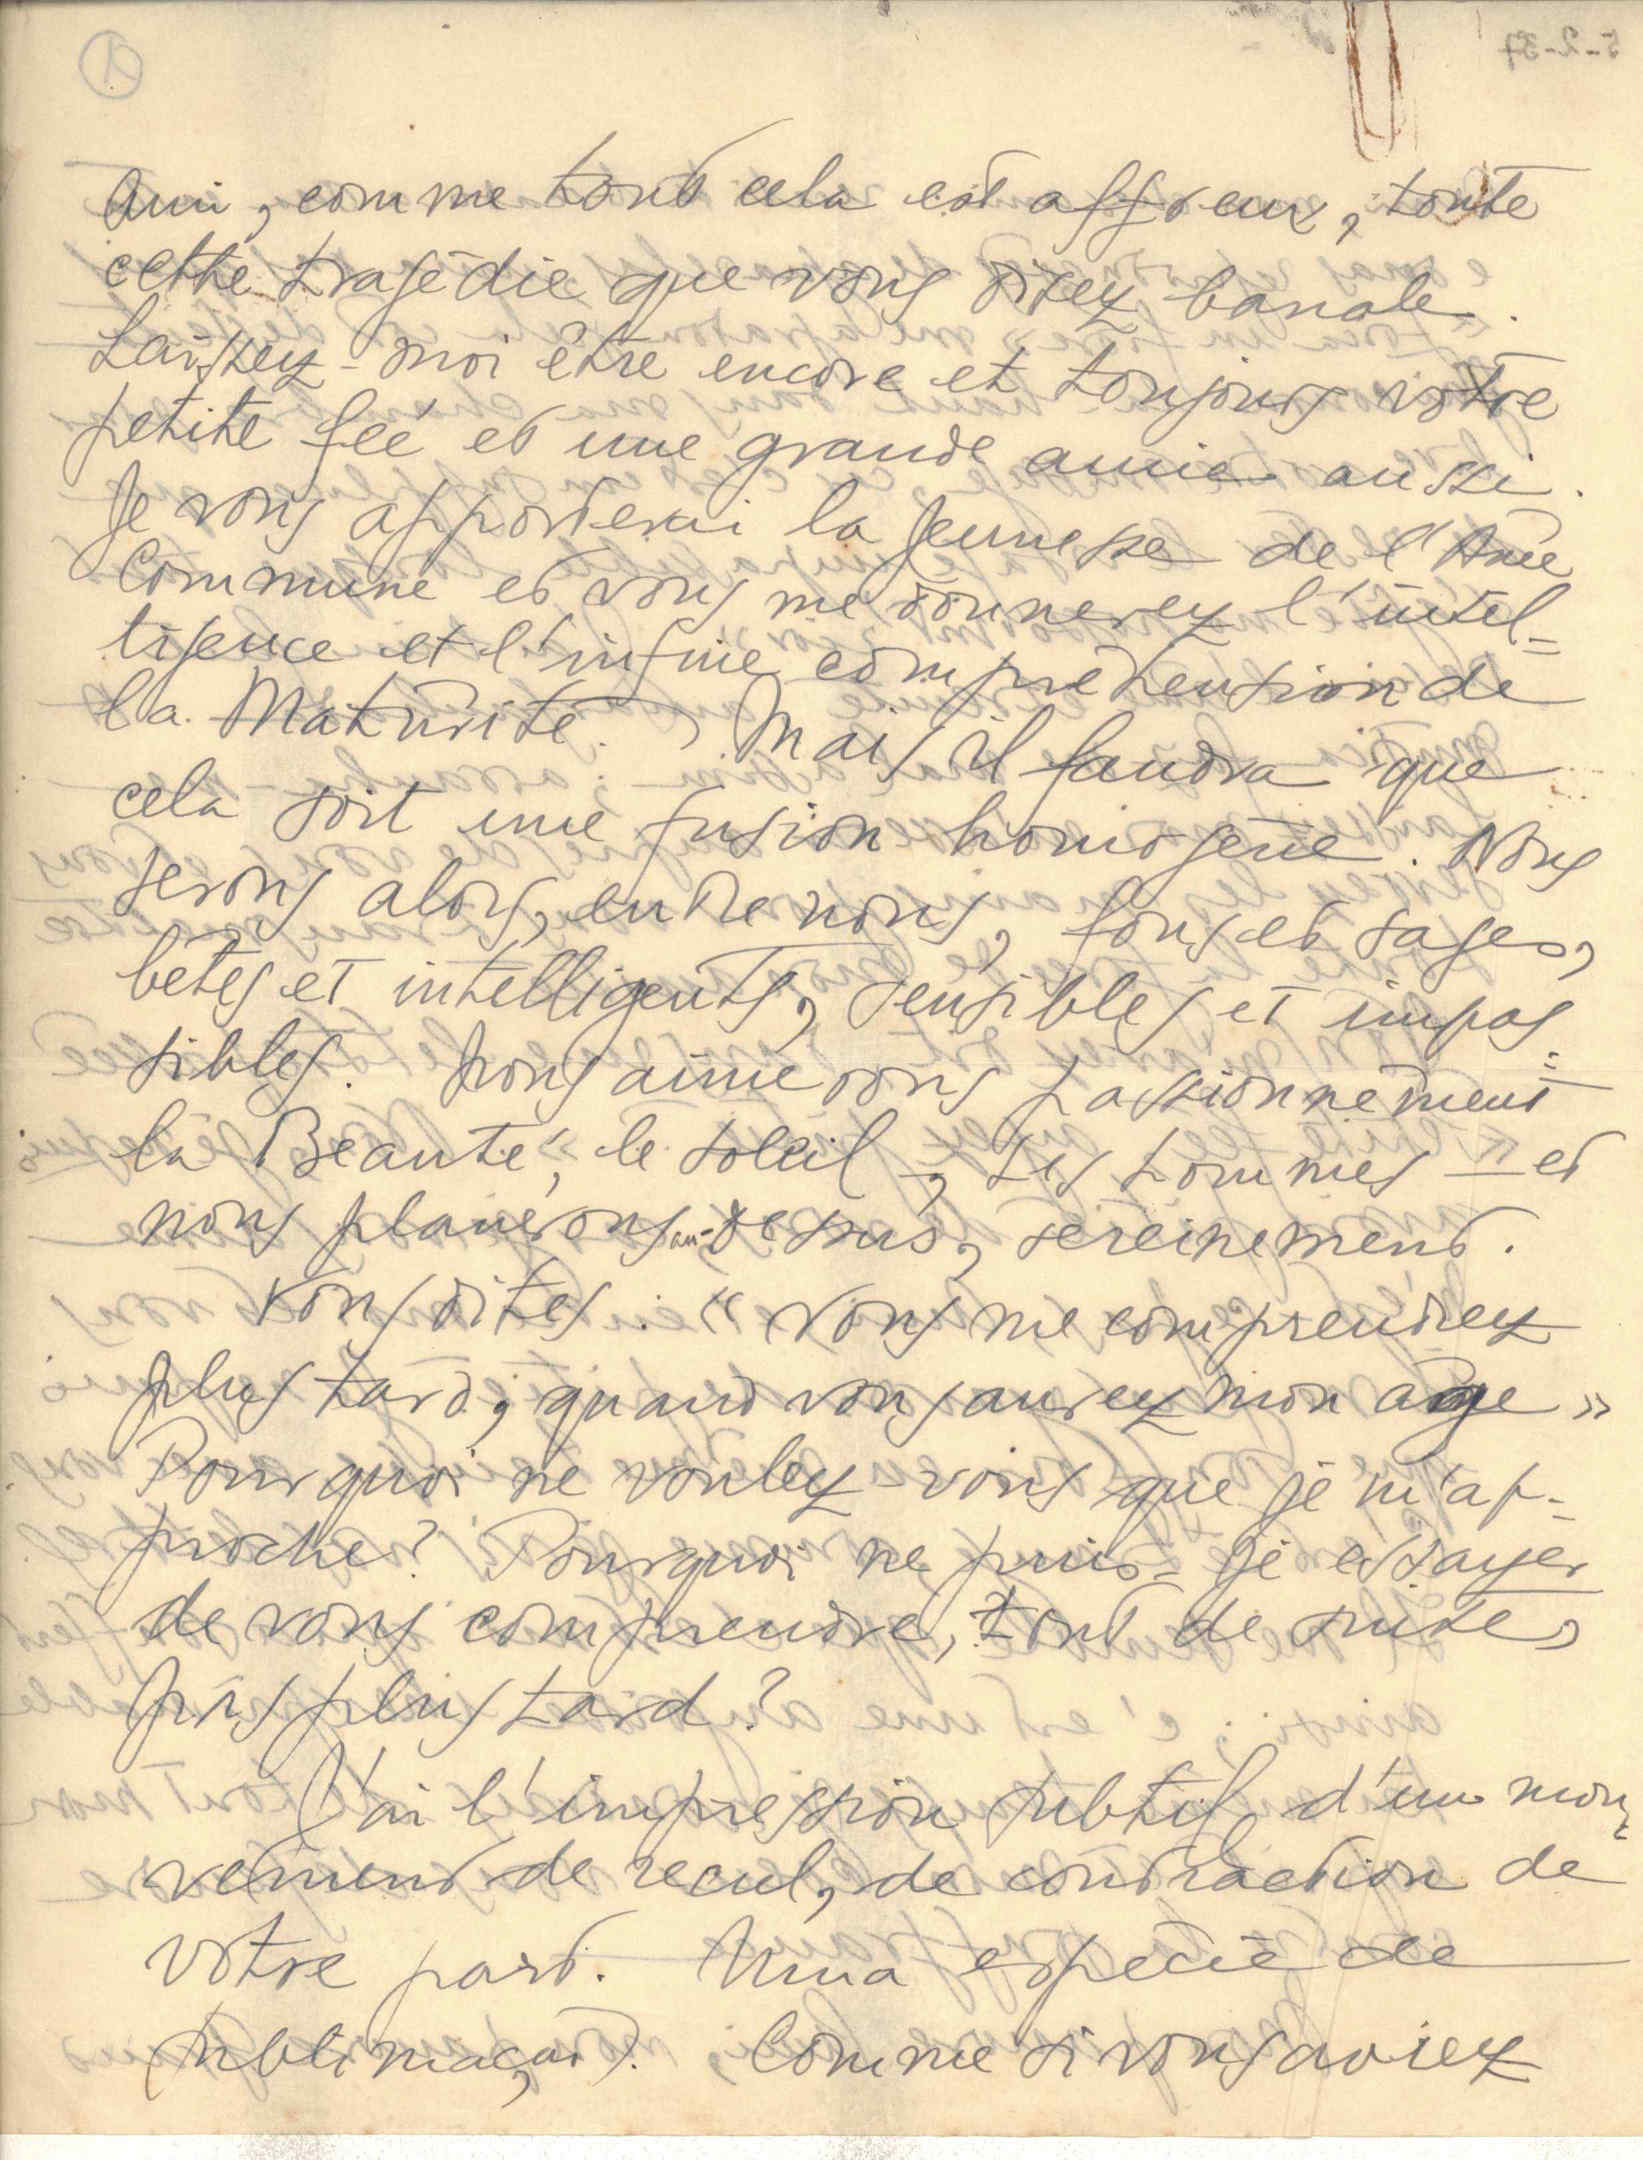 ①
Ami, comme tout cela est affreux, toute
cette tragédie que vous disez banale.
Laissez-moi être encore et toujours votre
petite fée et une grande amie aussi.
Je vous apporterai la Jeunesse de l'Âme
Commune et vous me donnerez l'intel=
ligence et l'infinie compréhension de
la Maturité. Mais il faudra que
cela soit une fusion homogène. Nous
serons alors, entre nous, fous et sages,
bêtes et intelligents, sensibles et impas=
sibles. Nous aimerons passionnément
la Beauté, le soleil, les hommes — et
nous planerons au-dessus, sereinement.
Vous dites : « Vous me comprendrez
plus tard, quand vous aurez mon âge »
Pourquoi ne voulez-vous que je m'ap-
proche? Pourquoi ne puis-je essayer
de vous comprendre, tout de suite,
pas plus tard?
J'ai l'impression subtil d'un mou-
vement de recul, de contraction de
votre part. Uma especie de
sublimação. Comme si vous aviez